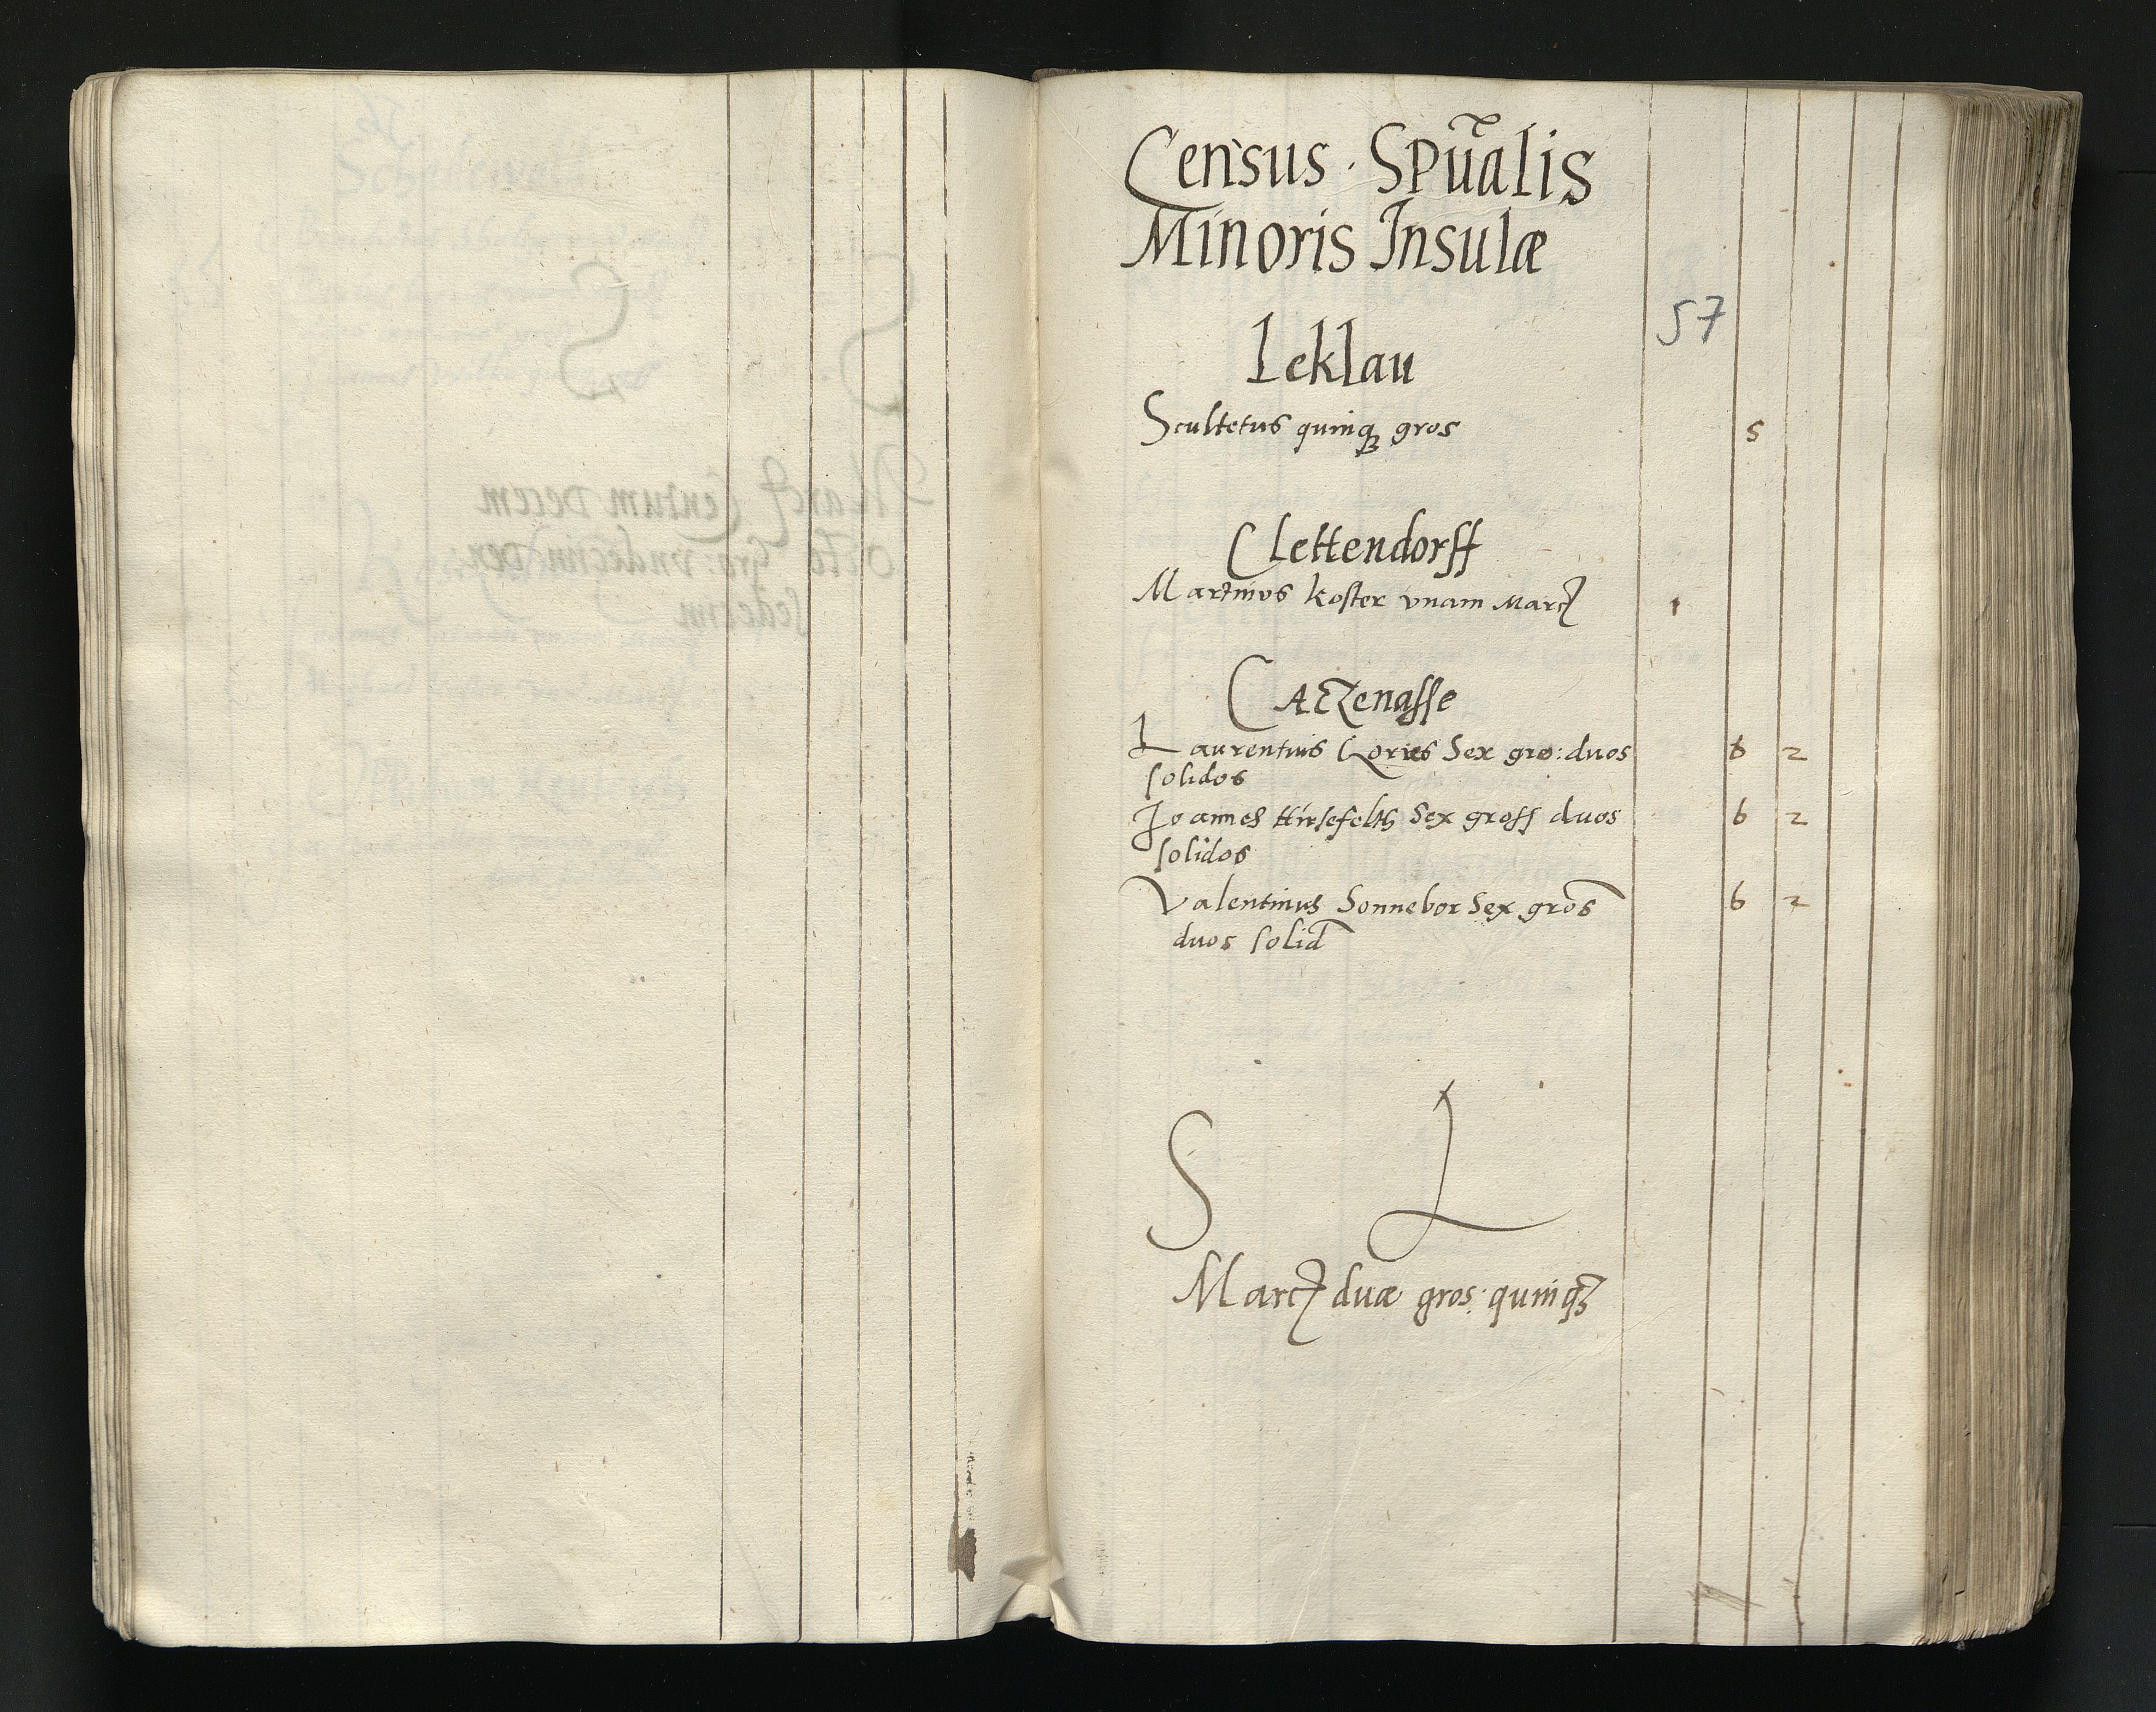 Census · Spūalis
Minoris Insulæ
57
Leklau
Scultetus quinqꝫ gros 5
Clettendorff
Martinus Koster vnam Marcꝭ 1
Catzenasse
Laurentius Sex gro: duos 6 2
solidos
Joannes Hirsefelth Sex gross duos 6 2
solidos
Valentinus Sonnebor Sex gros 6 2
duos solid
S L
Marcꝭ duæ gros: quinqꝫ